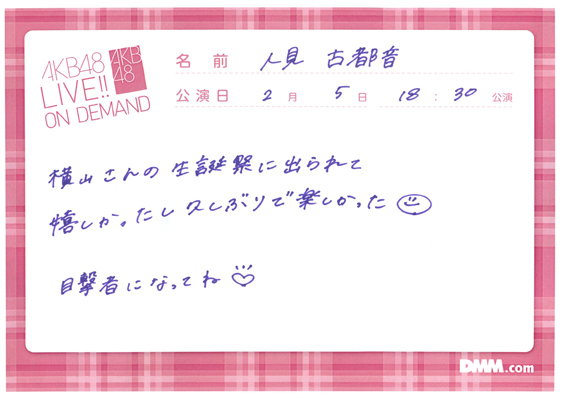 AKB48
LIVE!!
ON DEMAND
AKB
48
名前 人見 古都音
公演日 2月 5日 18:30 公演
横山さんの生誕祭に出られて
嬉しかったし久しぶりで楽しかった
目撃者になってね
DMM.com